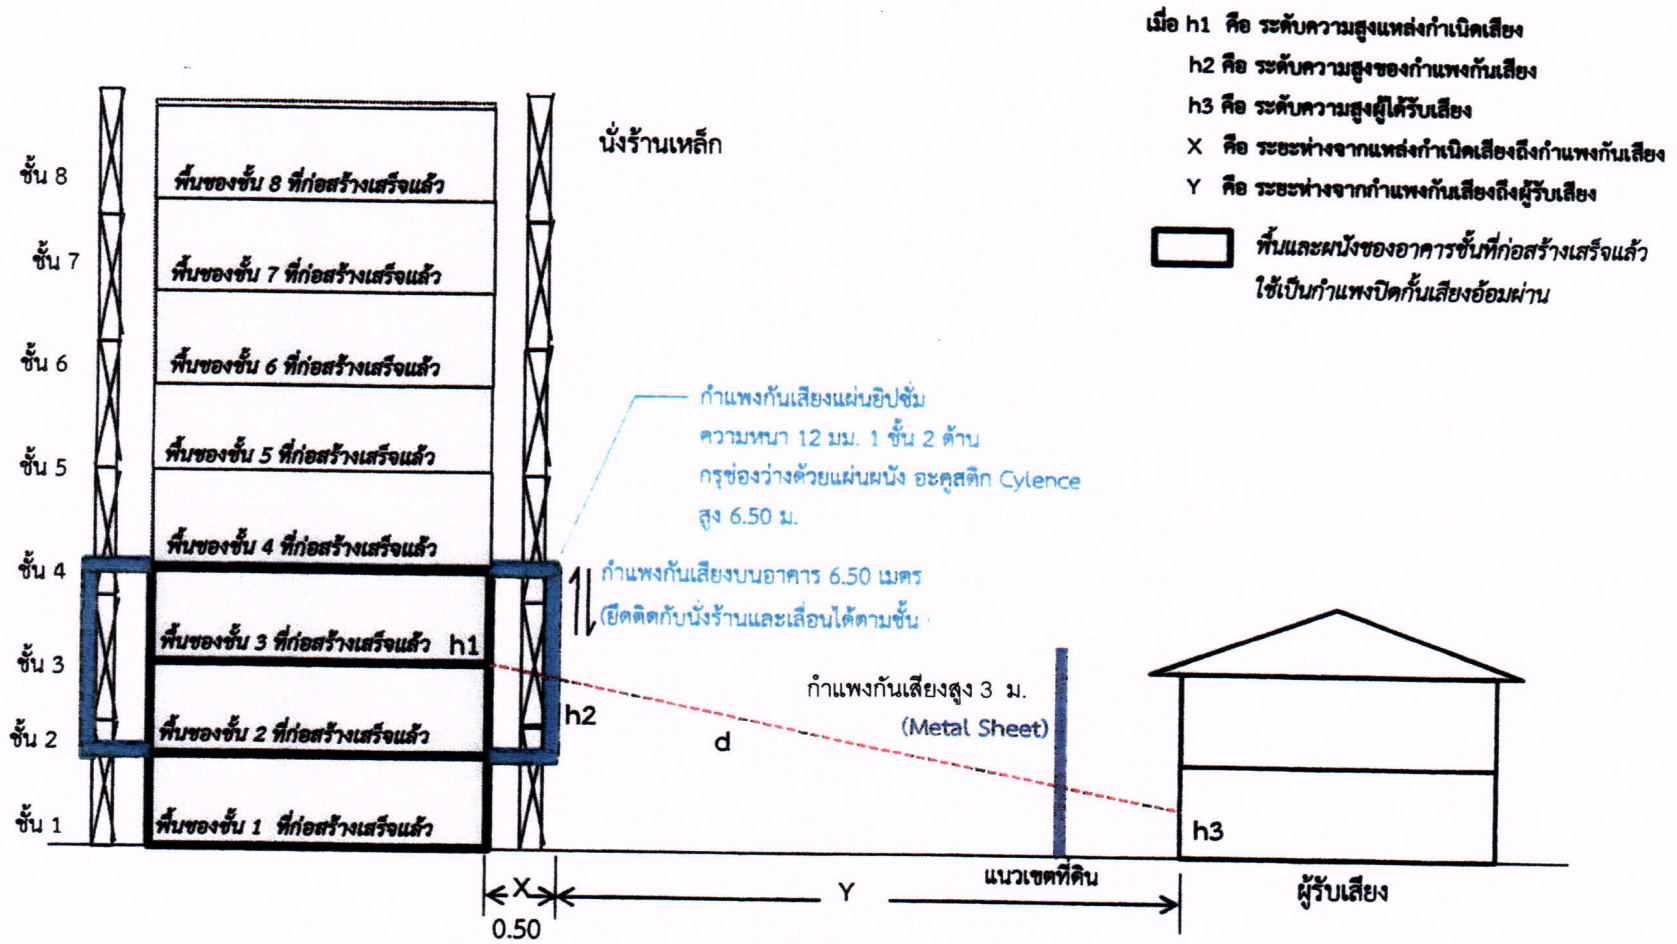 เมื่อ h1 คือ ระดับความสูงแหล่งกำเนิดเสียง
h2 คือ ระดับความสูงของกำแพงกันเสียง
h3 คือ ระดับความสูงผู้ได้รับเสียง
X คือ ระยะห่างจากแหล่งกำเนิดเสียงถึงกำแพงกันเสียง
Y คือ ระยะห่างจากกำแพงกันเสียงถึงผู้รับเสียง
พื้นและผนังของอาคารชั้นที่ก่อสร้างเสร็จแล้ว
ใช้เป็นกำแพงปิดกั้นเสียงอ้อมผ่าน
นั่งร้านเหล็ก
ชั้น 8
พื้นของชั้น 8 ที่ก่อสร้างเสร็จแล้ว
ชั้น 7
พื้นของชั้น 7 ที่ก่อสร้างเสร็จแล้ว
ชั้น 6
พื้นของชั้น 6 ที่ก่อสร้างเสร็จแล้ว
ชั้น 5
พื้นของชั้น 5 ที่ก่อสร้างเสร็จแล้ว
ชั้น 4
พื้นของชั้น 4 ที่ก่อสร้างเสร็จแล้ว
ชั้น 3
พื้นของชั้น 3 ที่ก่อสร้างเสร็จแล้ว
ชั้น 2
พื้นของชั้น 2 ที่ก่อสร้างเสร็จแล้ว
ชั้น 1
พื้นของชั้น 1 ที่ก่อสร้างเสร็จแล้ว
กำแพงกันเสียงแผ่นยิปซั่ม
ความหนา 12 มม. 1 ชั้น 2 ด้าน
กรุช่องว่างด้วยแผ่นผนัง อะคูสติก Cylence
สูง 6.50 ม.
กำแพงกันเสียงบนอาคาร 6.50 เมตร
(ยึดติดกับนั่งร้านและเลื่อนได้ตามชั้น
h1
h2
d
กำแพงกันเสียงสูง 3 ม.
(Metal Sheet)
h3
แนวเขตที่ดิน
ผู้รับเสียง
X
Y
0.50